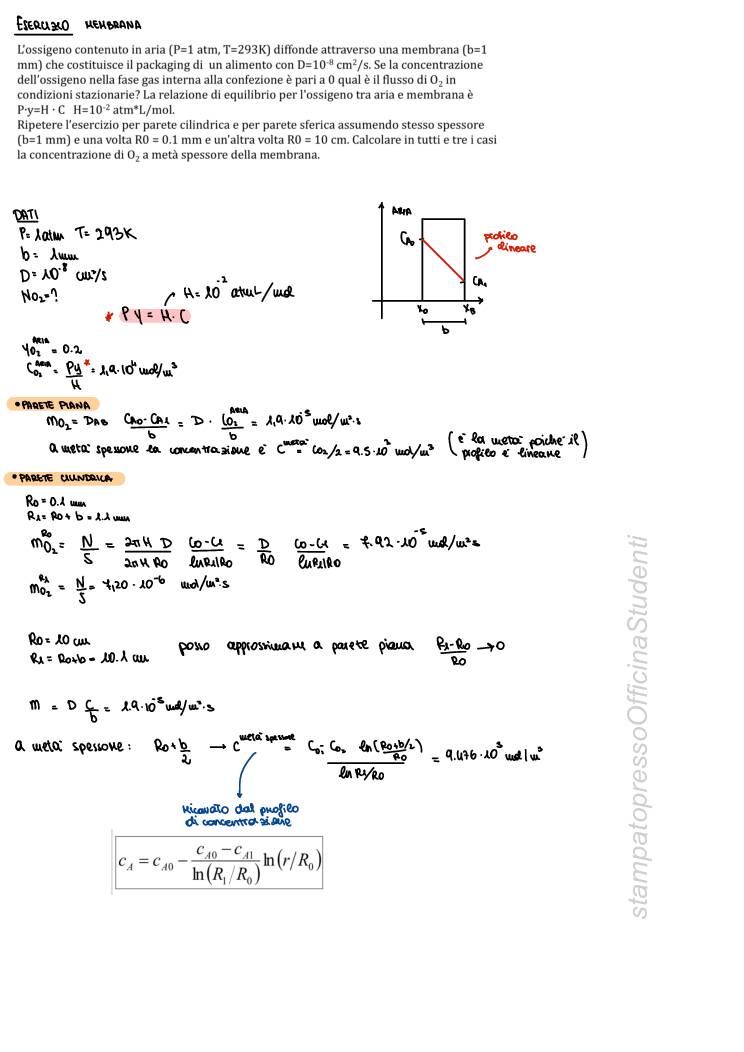 ESERCIZIO MEMBRANA
L'ossigeno contenuto in aria (P=1 atm, T=293K) diffonde attraverso una membrana (b=1
mm) che costituisce il packaging di un alimento con D=10⁻⁸ cm²/s. Se la concentrazione
dell'ossigeno nella fase gas interna alla confezione è pari a 0 qual è il flusso di O₂ in
condizioni stazionarie? La relazione di equilibrio per l'ossigeno tra aria e membrana è
P·y=H · C H=10⁻² atm*L/mol.
Ripetere l'esercizio per parete cilindrica e per parete sferica assumendo stesso spessore
(b=1 mm) e una volta R0 = 0.1 mm e un'altra volta R0 = 10 cm. Calcolare in tutti e tre i casi
la concentrazione di O₂ a metà spessore della membrana.
DATI
P= 1atm T= 293K
b= 1mm
D= 10⁻⁸ cm²/s
NO₂=?
H= 10⁻² atmL/mol
* PY = H·C
ARIA
CA0
profilo lineare
CA1
X0 XB
b
YO₂ᴬᴿᴵᴬ = 0.2
CO₂ᴬᴿᴵᴬ = Py*/H = 1,9·10⁴ mol/m³
• PARETE PIANA
mO₂ = DAB (CA0-CA1)/b = D · CO₂ᴬᴿᴵᴬ/b = 1,9·10⁻⁵ mol/m²·s
a metà spessore la concentrazione è Cᵐᵉᵗᵃ̀ = CO₂/2 = 9.5·10³ mol/m³ (è la metà poiché il profilo è lineare)
• PARETE CILINDRICA
R0 = 0.1 mm
R1 = R0 + b = 1.1 mm
mO₂ᴿ⁰ = N/S = 2πH D/2πH R0 (C0-C1)/lnR1/R0 = D/R0 (C0-C1)/lnR1/R0 = 7.92·10⁻⁵ mol/m²s
mO₂ᴿ¹ = N/S = 7,20·10⁻⁶ mol/m²·s
R0 = 10 cm
R1 = R0+b = 10.1 cm
posso approssimare a parete piana (R1-R0)/R0 → 0
m = D C/b = 1.9·10⁻⁵ mol/m²·s
a metà spessore: R0 + b/2 → Cᵐᵉᵗᵃ̀ ˢᵖᵉˢˢᵒʳᵉ = C0 - C0 ln((R0+b/2)/R0)/ln R1/R0 = 9.476·10³ mol/m³
Ricavato dal profilo
di concentrazione
c_A = c_A0 − (c_A0 − c_A1)/ln(R₁/R₀) ln(r/R₀)
stampatopressoOfficinaStudenti